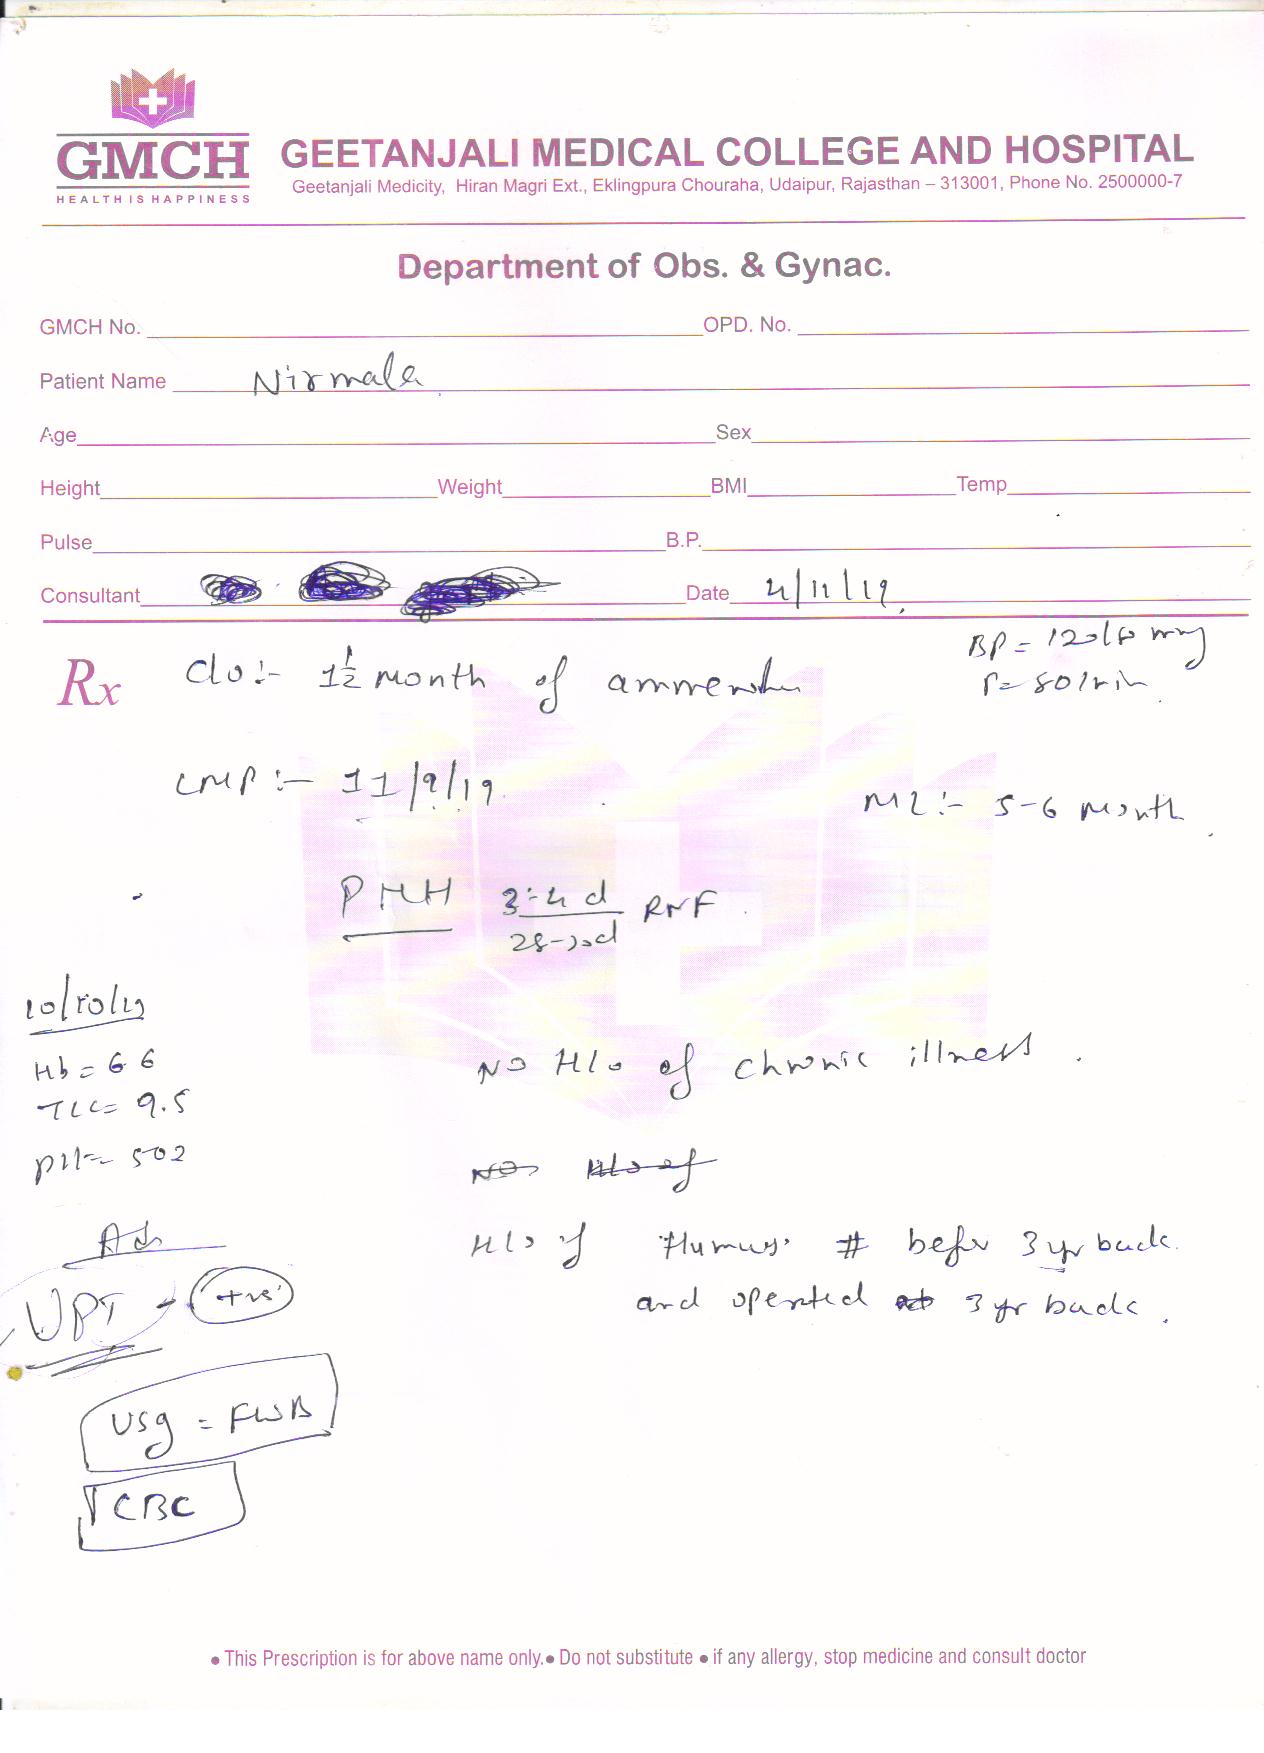 GMCH
HEALTH IS HAPPINESS
GEETANJALI MEDICAL COLLEGE AND HOSPITAL
Geetanjali Medicity, Hiran Magri Ext., Eklingpura Chouraha, Udaipur, Rajasthan – 313001, Phone No. 2500000-7
Department of Obs. & Gynac.
GMCH No. OPD. No.
Patient Name Nirmala
Age Sex
Height Weight BMI Temp
Pulse B.P.
Consultant Date 4/11/19
Rx C/o :- 1½ month of
BP = 120/
P = 80/min
LMP :- 11/9/19
ML :- 5-6 month
PMH 3-4 d
28-30d
10/10/19
Hb = 6.6
TLC = 9.5
plt = 502
NO H/o of chronic illness.
NO H/o of
H/o of # 3 yr back
and operated 3 yr back.
Adv
UPT → +ve
USG = FWB
CBC
• This Prescription is for above name only. • Do not substitute • if any allergy, stop medicine and consult doctor